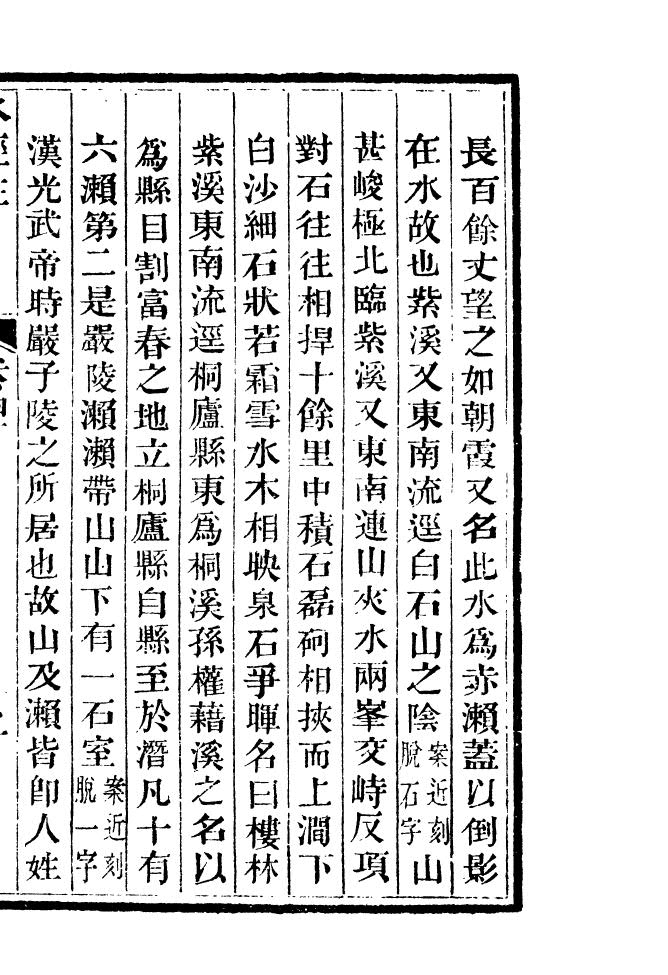 長百餘丈望之如朝霞又名此水爲赤瀨蓋以倒影
在水故也紫溪又東南流逕白石山之陰案近刻脫石字山
甚峻極北臨紫溪又東南連山夾水兩峯交峙反項
對石往往相捍十餘里中積石磊砢相挾而上澗下
白沙細石狀若霜雪水木相映泉石爭暉名曰樓林
紫溪東南流逕桐廬縣東爲桐溪孫權藉溪之名以
爲縣目割富春之地立桐廬縣自縣至於潛凡十有
六瀨第二是嚴陵瀨瀨帶山山下有一石室案近刻脫一字
漢光武帝時嚴子陵之所居也故山及瀨皆卽人姓